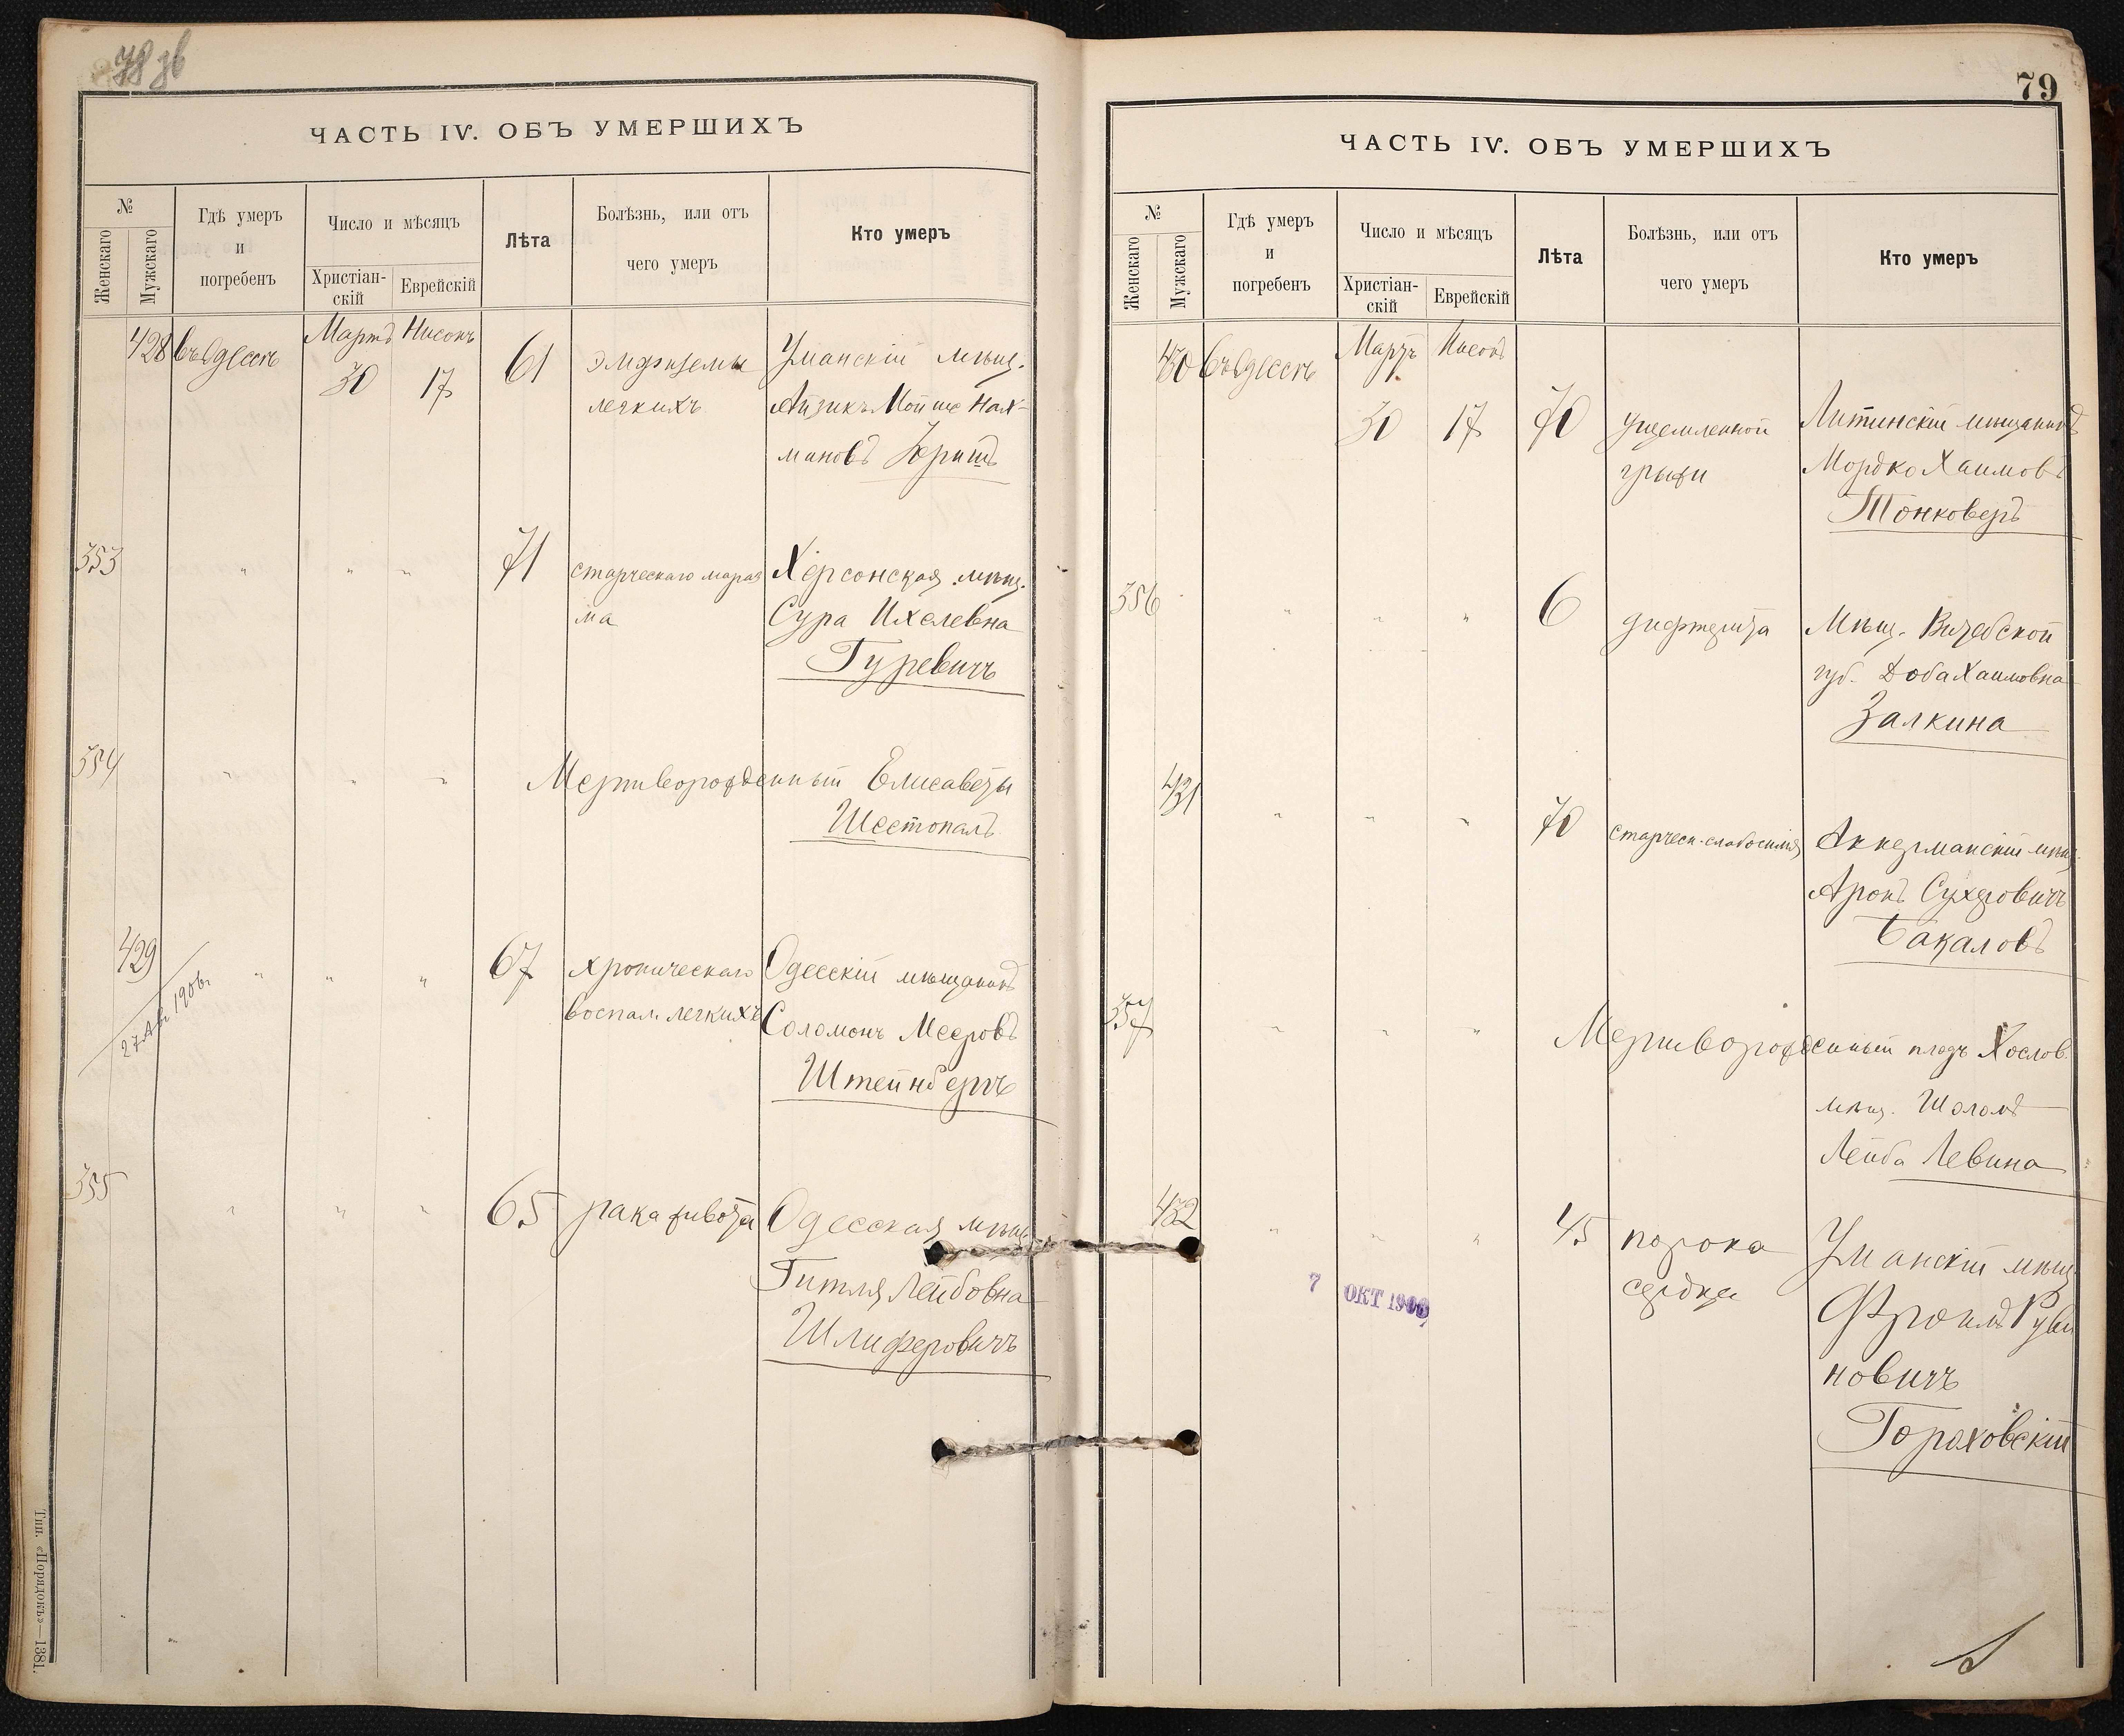 78 об
ЧАСТЬ IV. ОБЪ УМЕРШИХЪ
№
Женскаго
Мужскаго
Гдѣ умеръ
и
погребенъ
Число и мѣсяцъ
Христіан-
скій
Еврейскій
Лѣта
Болѣзнь, или отъ
чего умеръ
Кто умеръ
428 въ Одессѣ Мартъ Нисонъ
30 17 61 эмфиземы Уманскій мѣщ.
легкихъ Айзикъ Мойше Нах-
мановъ
353 " " " 71 старческаго мараз Херсонская мѣщ.
ма Сура Ихелевна
Гуревичъ
354 " " " Мертворожденный Елисаветы
Шестопалъ
429 " " " 67 хроническаго Одесскій мѣщанинъ
27 Ав 1906 воспал. легкихъ Соломонъ Мееровъ
Штейнбергъ
355 " " " 65 рака живота Одесская мѣщ.
Гитля Лейбовна
Шлиферовичъ
Тип. «Порядокъ»—1381.
79
ЧАСТЬ IV. ОБЪ УМЕРШИХЪ
№
Женскаго
Мужскаго
Гдѣ умеръ
и
погребенъ
Число и мѣсяцъ
Христіан-
скій
Еврейскій
Лѣта
Болѣзнь, или отъ
чего умеръ
Кто умеръ
430 въ Одессѣ Мартъ Нисонъ
30 17 70 ущемленной Литинскій мѣщанинъ
грыжи Мордко Хаимовъ
Тонконогъ
356 " " " 6 дифтерита Мѣщ. Витебской
губ. Доба Хаимовна
Залкина
431 " " " 70 старческ. слабосилія Аккерманскій мѣщ.
Аронъ Сухеровичъ
Бакаловъ
357 " " " Мертворожденный плодъ Хослов.
мѣщ. Шоломъ
Лейба Левина
432 " " " 45 порока Уманскій мѣщ.
сердца Фроимъ Руви
новичъ
Гороховскій
7 ОКТ 1906